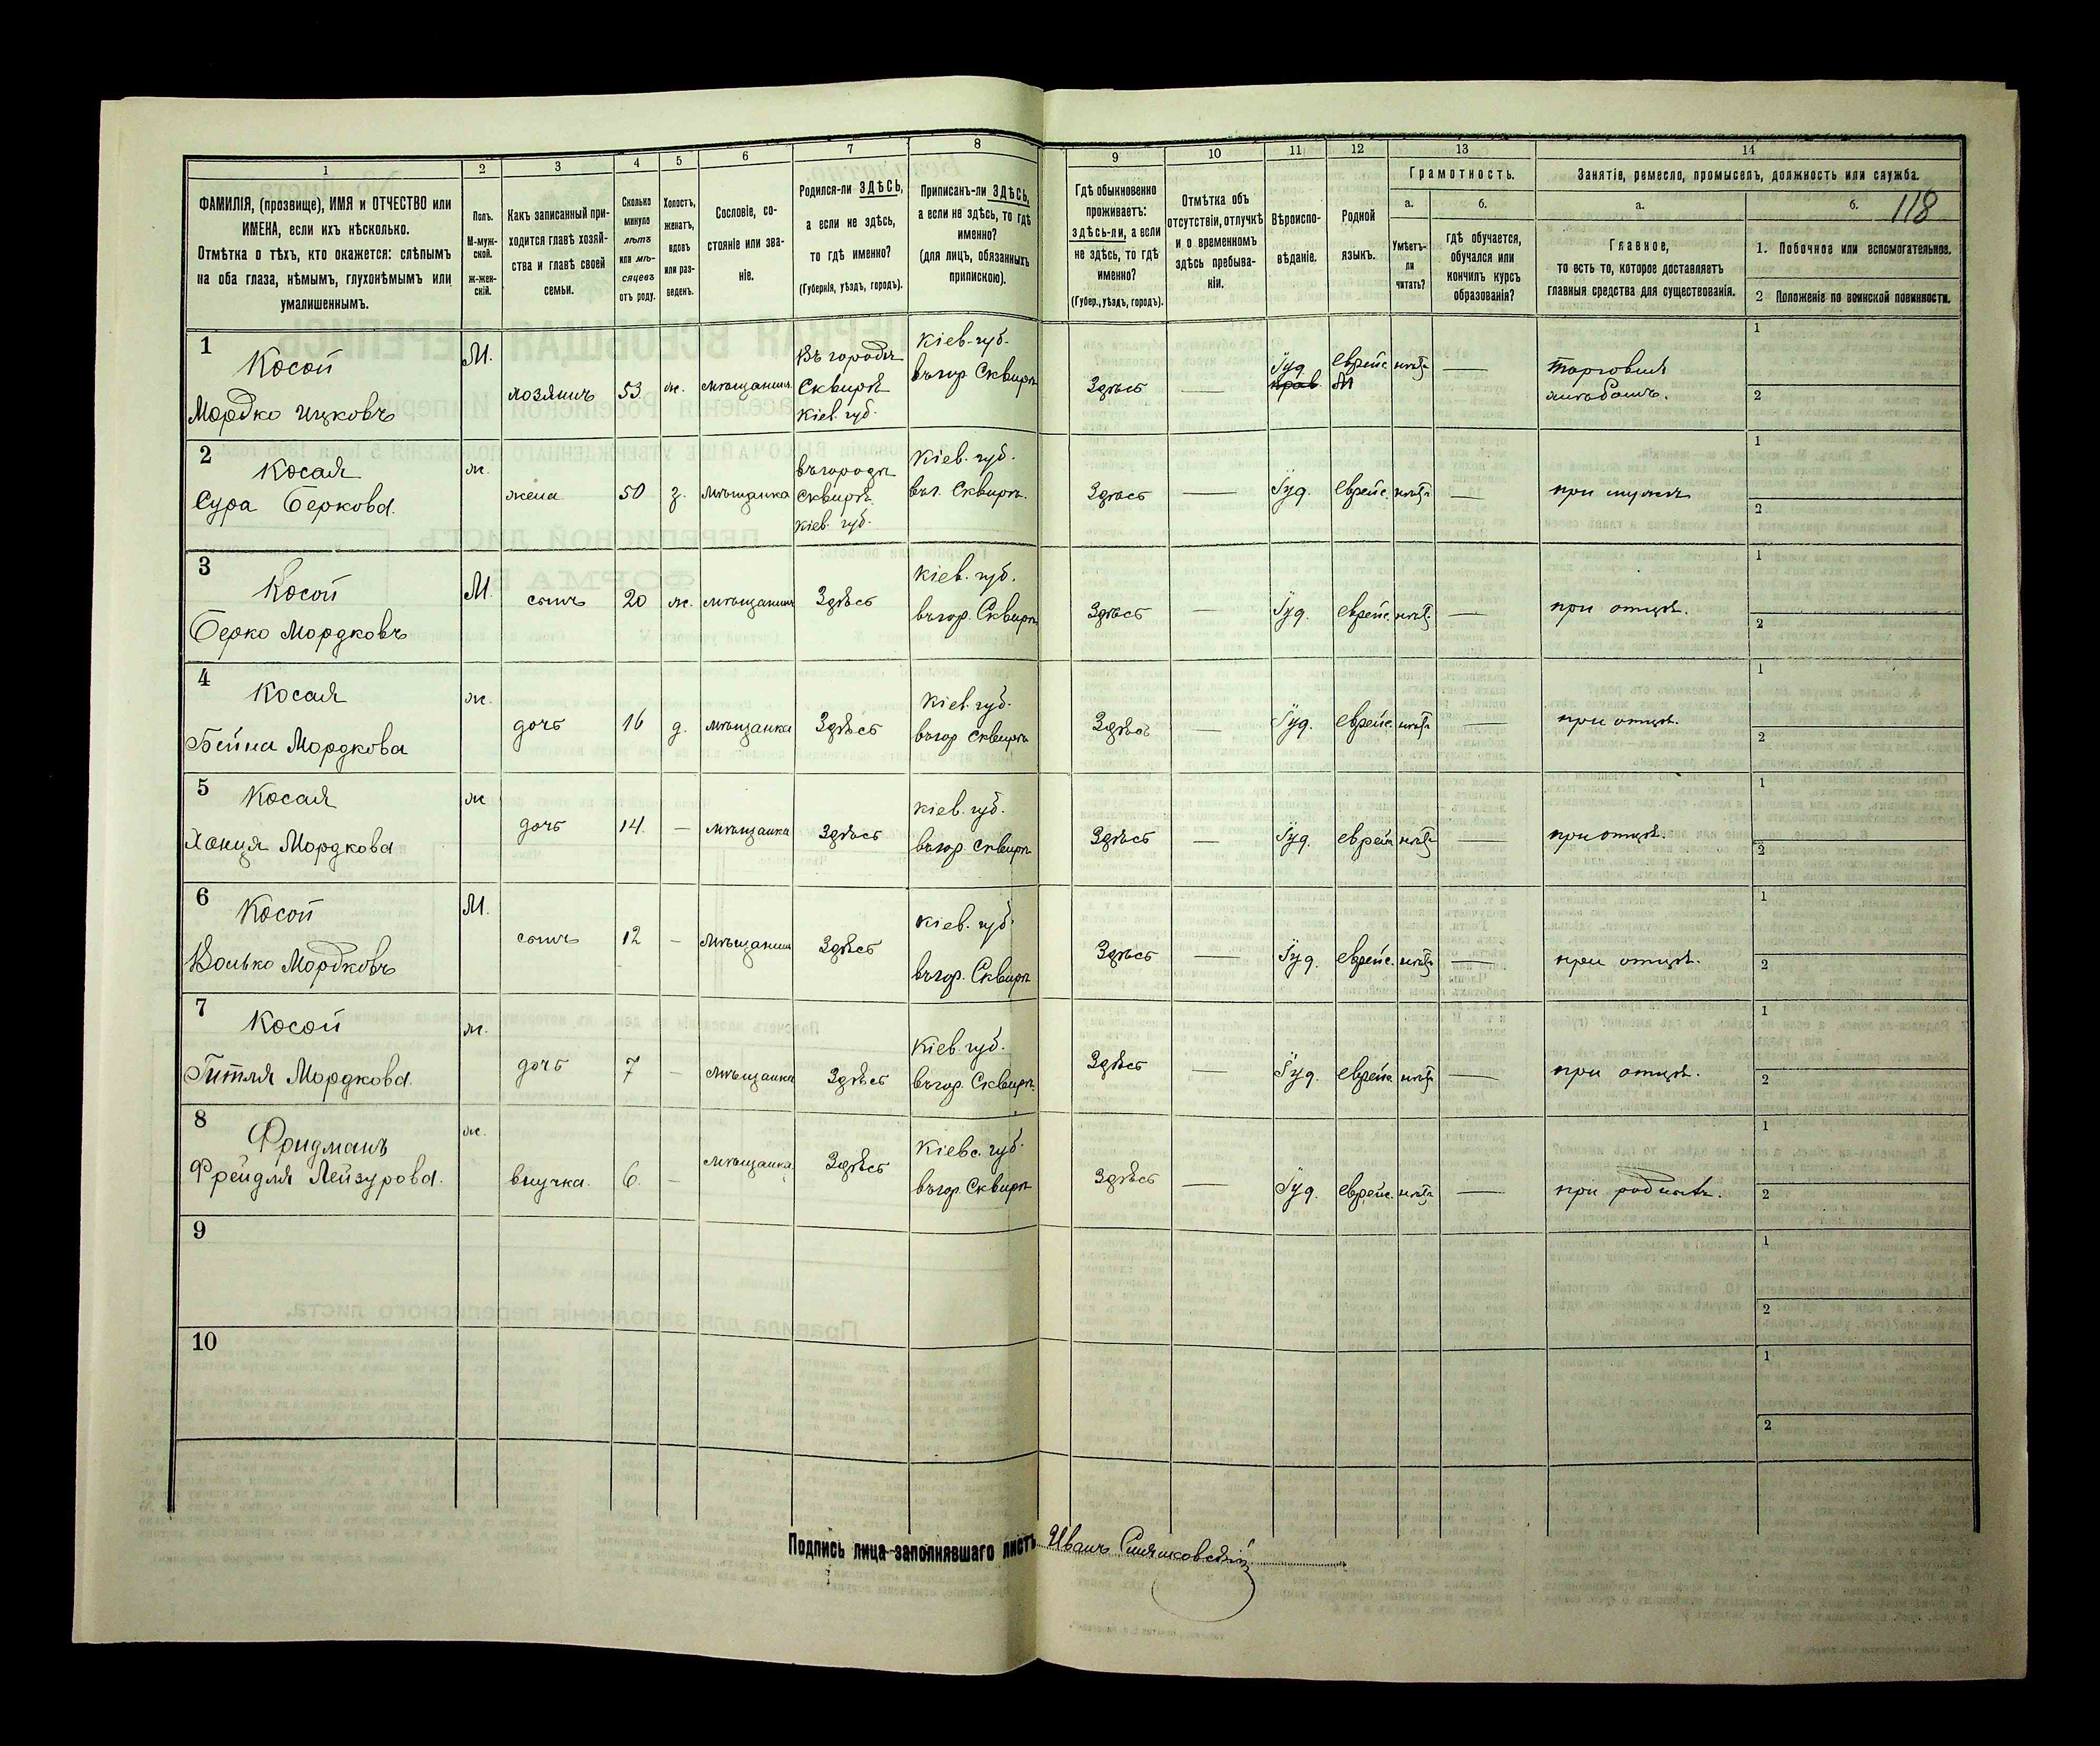 118
1 2 3 4 5 6 7 8 9 10 11 12 13 14
ФАМИЛІЯ, (прозвище), ИМЯ и ОТЧЕСТВО или
ИМЕНА, если ихъ нѣсколько.
Отмѣтка о тѣхъ, кто окажется: слѣпымъ
на оба глаза, нѣмымъ, глухонѣмымъ или
умалишеннымъ.
Полъ.
М-муж-
ской.
ж-жен-
скій.
Какъ записанный при-
ходится главѣ хозяй-
ства и главѣ своей
семьи.
Сколько
минуло
лѣтъ
или мѣ-
сяцевъ
отъ роду.
Холостъ,
женатъ,
вдовъ
или раз-
веденъ.
Сословіе, со-
стояніе или зва-
ніе.
Родился-ли ЗДѢСЬ,
а если не здѣсь,
то гдѣ именно?
(Губернія, уѣздъ, городъ).
Приписанъ-ли ЗДѢСЬ,
а если не здѣсь, то гдѣ
именно?
(для лицъ, обязанныхъ
припискою).
Гдѣ обыкновенно
проживаетъ:
здѣсь-ли, а если
не здѣсь, то гдѣ
именно?
(Губер., уѣздъ, городъ).
Отмѣтка объ
отсутствіи, отлучкѣ
и о временномъ
здѣсь пребыва-
ніи.
Вѣроиспо-
вѣданіе.
Родной
языкъ.
Грамотность.
а.
Умѣетъ-
ли
читать?
б.
гдѣ обучается,
обучался или
кончилъ курсъ
образованія?
Занятіе, ремесло, промыселъ, должность или служба.
а.
Главное,
то есть то, которое доставляетъ
главныя средства для существованія.
б.
1. Побочное или вспомогательное.
2 Положеніе по воинской повинности.
1
Косой
Мордко Ицковъ
М.
хозяинъ
53.
ж.
мѣщанинъ
Въ городѣ
Сквирѣ
Кіев. губ.
Кіев. губ.
въ гор. Сквирѣ
Здѣсь
—
Іуд.
Еврейс.
нѣтъ
—
торговля
хлѣбомъ.
1
2
2
Косая
Сура Беркова.
ж.
жена
50
з.
мѣщанка
въ городѣ
Сквирѣ
Кіев. губ.
Кіев. губ.
въ г. Сквирѣ.
Здѣсь
—
Іуд.
Еврейс.
нѣтъ
—
при мужѣ
1
2
3
Косой
Берко Мордковъ
М.
сынъ
20
ж.
мѣщанинъ
Здѣсь
Кіев. губ.
въ гор. Сквирѣ
Здѣсь
—
Іуд.
еврейс.
нѣтъ
—
при отцѣ.
1
2
4
Косая
Бейна Мордкова
ж.
дочь
16
д.
мѣщанка
Здѣсь
Кіев. губ.
въ гор. Сквирѣ
Здѣсь
—
Іуд.
Еврейс.
нѣтъ
—
при отцѣ.
1
2
5
Косая
Ханця Мордкова
ж
дочь
14.
—
мѣщанка
Здѣсь
Кіев. губ.
въ гор. Сквирѣ
Здѣсь
—
Іуд.
еврей
нѣтъ
—
при отцѣ.
1
2
6
Косой
Волько Мордковъ
М.
сынъ
12
—
мѣщанинъ
Здѣсь
Кіев. губ.
въ гор. Сквирѣ
Здѣсь
—
Іуд.
еврейс.
нѣтъ
—
при отцѣ.
1
2
7
Косой
Гитля Мордкова.
ж.
дочь
7
—
мѣщанка
Здѣсь
Кіев. губ.
въ гор. Сквирѣ.
Здѣсь
—
Іуд.
еврейс.
нѣтъ
—
при отцѣ.
1
2
8
Фридманъ
Фрейдля Лейзурова.
ж.
внучка.
6.
—
мѣщанка
Здѣсь
Кіевс. губ.
въ гор. Сквирѣ
Здѣсь
—
Іуд.
еврейс.
нѣтъ
—
при роднѣ.
1
2
9
1
2
10
1
2
Подпись лица заполнявшаго листъ
Иванъ